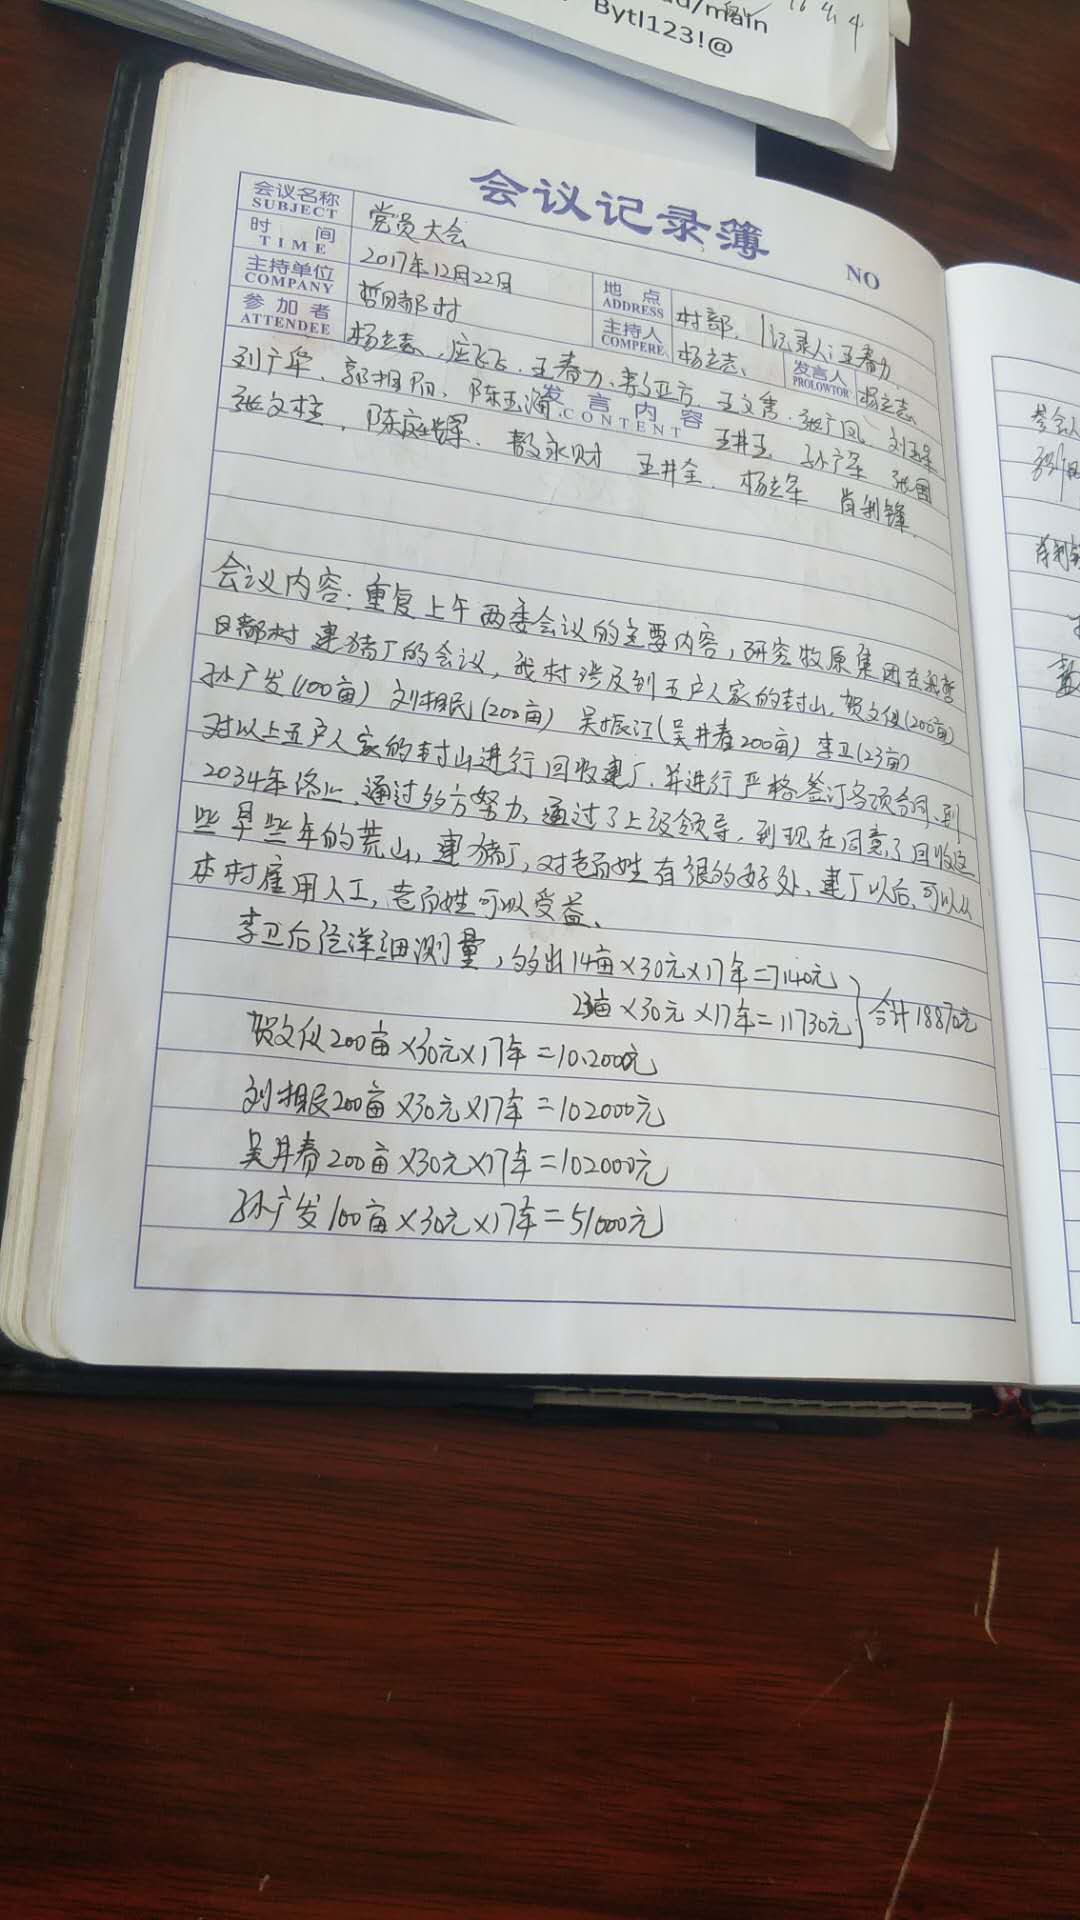 /main
Bytl123!@
会议记录簿
NO
会议名称 党员大会
SUBJECT
时间 2017年12月22日
TIME
地点 村部. 记录人:王春力.
ADDRESS
主持单位 哲日都村
COMPANY
主持人 杨立志、
COMPERE
发言人 杨立志
PROLOWTOR
参加者 杨立志、 王春力、 王文
ATTENDEE
发言内容
CONTENT
刘广军、郭相阳、陈玉 王井玉 孙广军
张文柱, 陈庭 敖永财 王井全. 杨立军 肖利锋.
会议内容:重复上午两委会议的主要内容,研究牧原集团在我哲
日都村建猪厂的会议,我村涉及到五户人家的封山,贺文仪(200亩)
孙广发(100亩) 刘相民(200亩) 吴振江(吴井春200亩) 李卫(23亩)
对以上五户人家的封山进行回收建厂.并进行严格签订各项合同、到
2034年终止,通过多方努力,通过了上级领导,到现在同意了回收这
些早些年的荒山,建猪厂,对老百姓有很的好处、建厂以后,可以从
本村雇用人工,老百姓可以受益、
李卫后经详细测量,多出14亩×30元×17年=7140元
23亩×30元×17年=11730元 合计18870元
贺文仪200亩×30元×17年=10.2000元
刘相民200亩×30元×17年=102000元
吴井春200亩×30元×17年=102000元
孙广发100亩×30元×17年=51000元